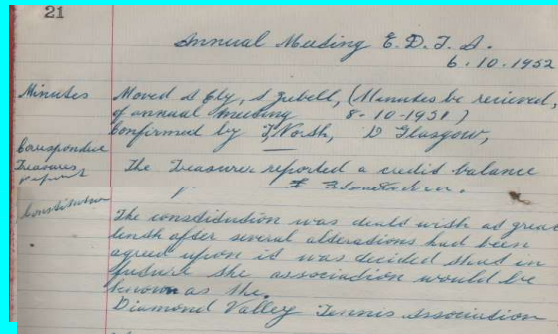 21
Annual Meeting E. D. T. A.
6.10.1952
Minutes Moved A Ely, A Zubell, (Minutes be recieved,
of annual meeting 8-10-1951)
Confirmed by T North, D Glasgow,
Correspondence
Treasures report The Treasurer reported a credit balance
of
Constitution The constidution was dealt with at great
lenth after several alterations had been
agreed upon it was decided that in
future the association would be
known as the.
Diamond Valley Tennis Association